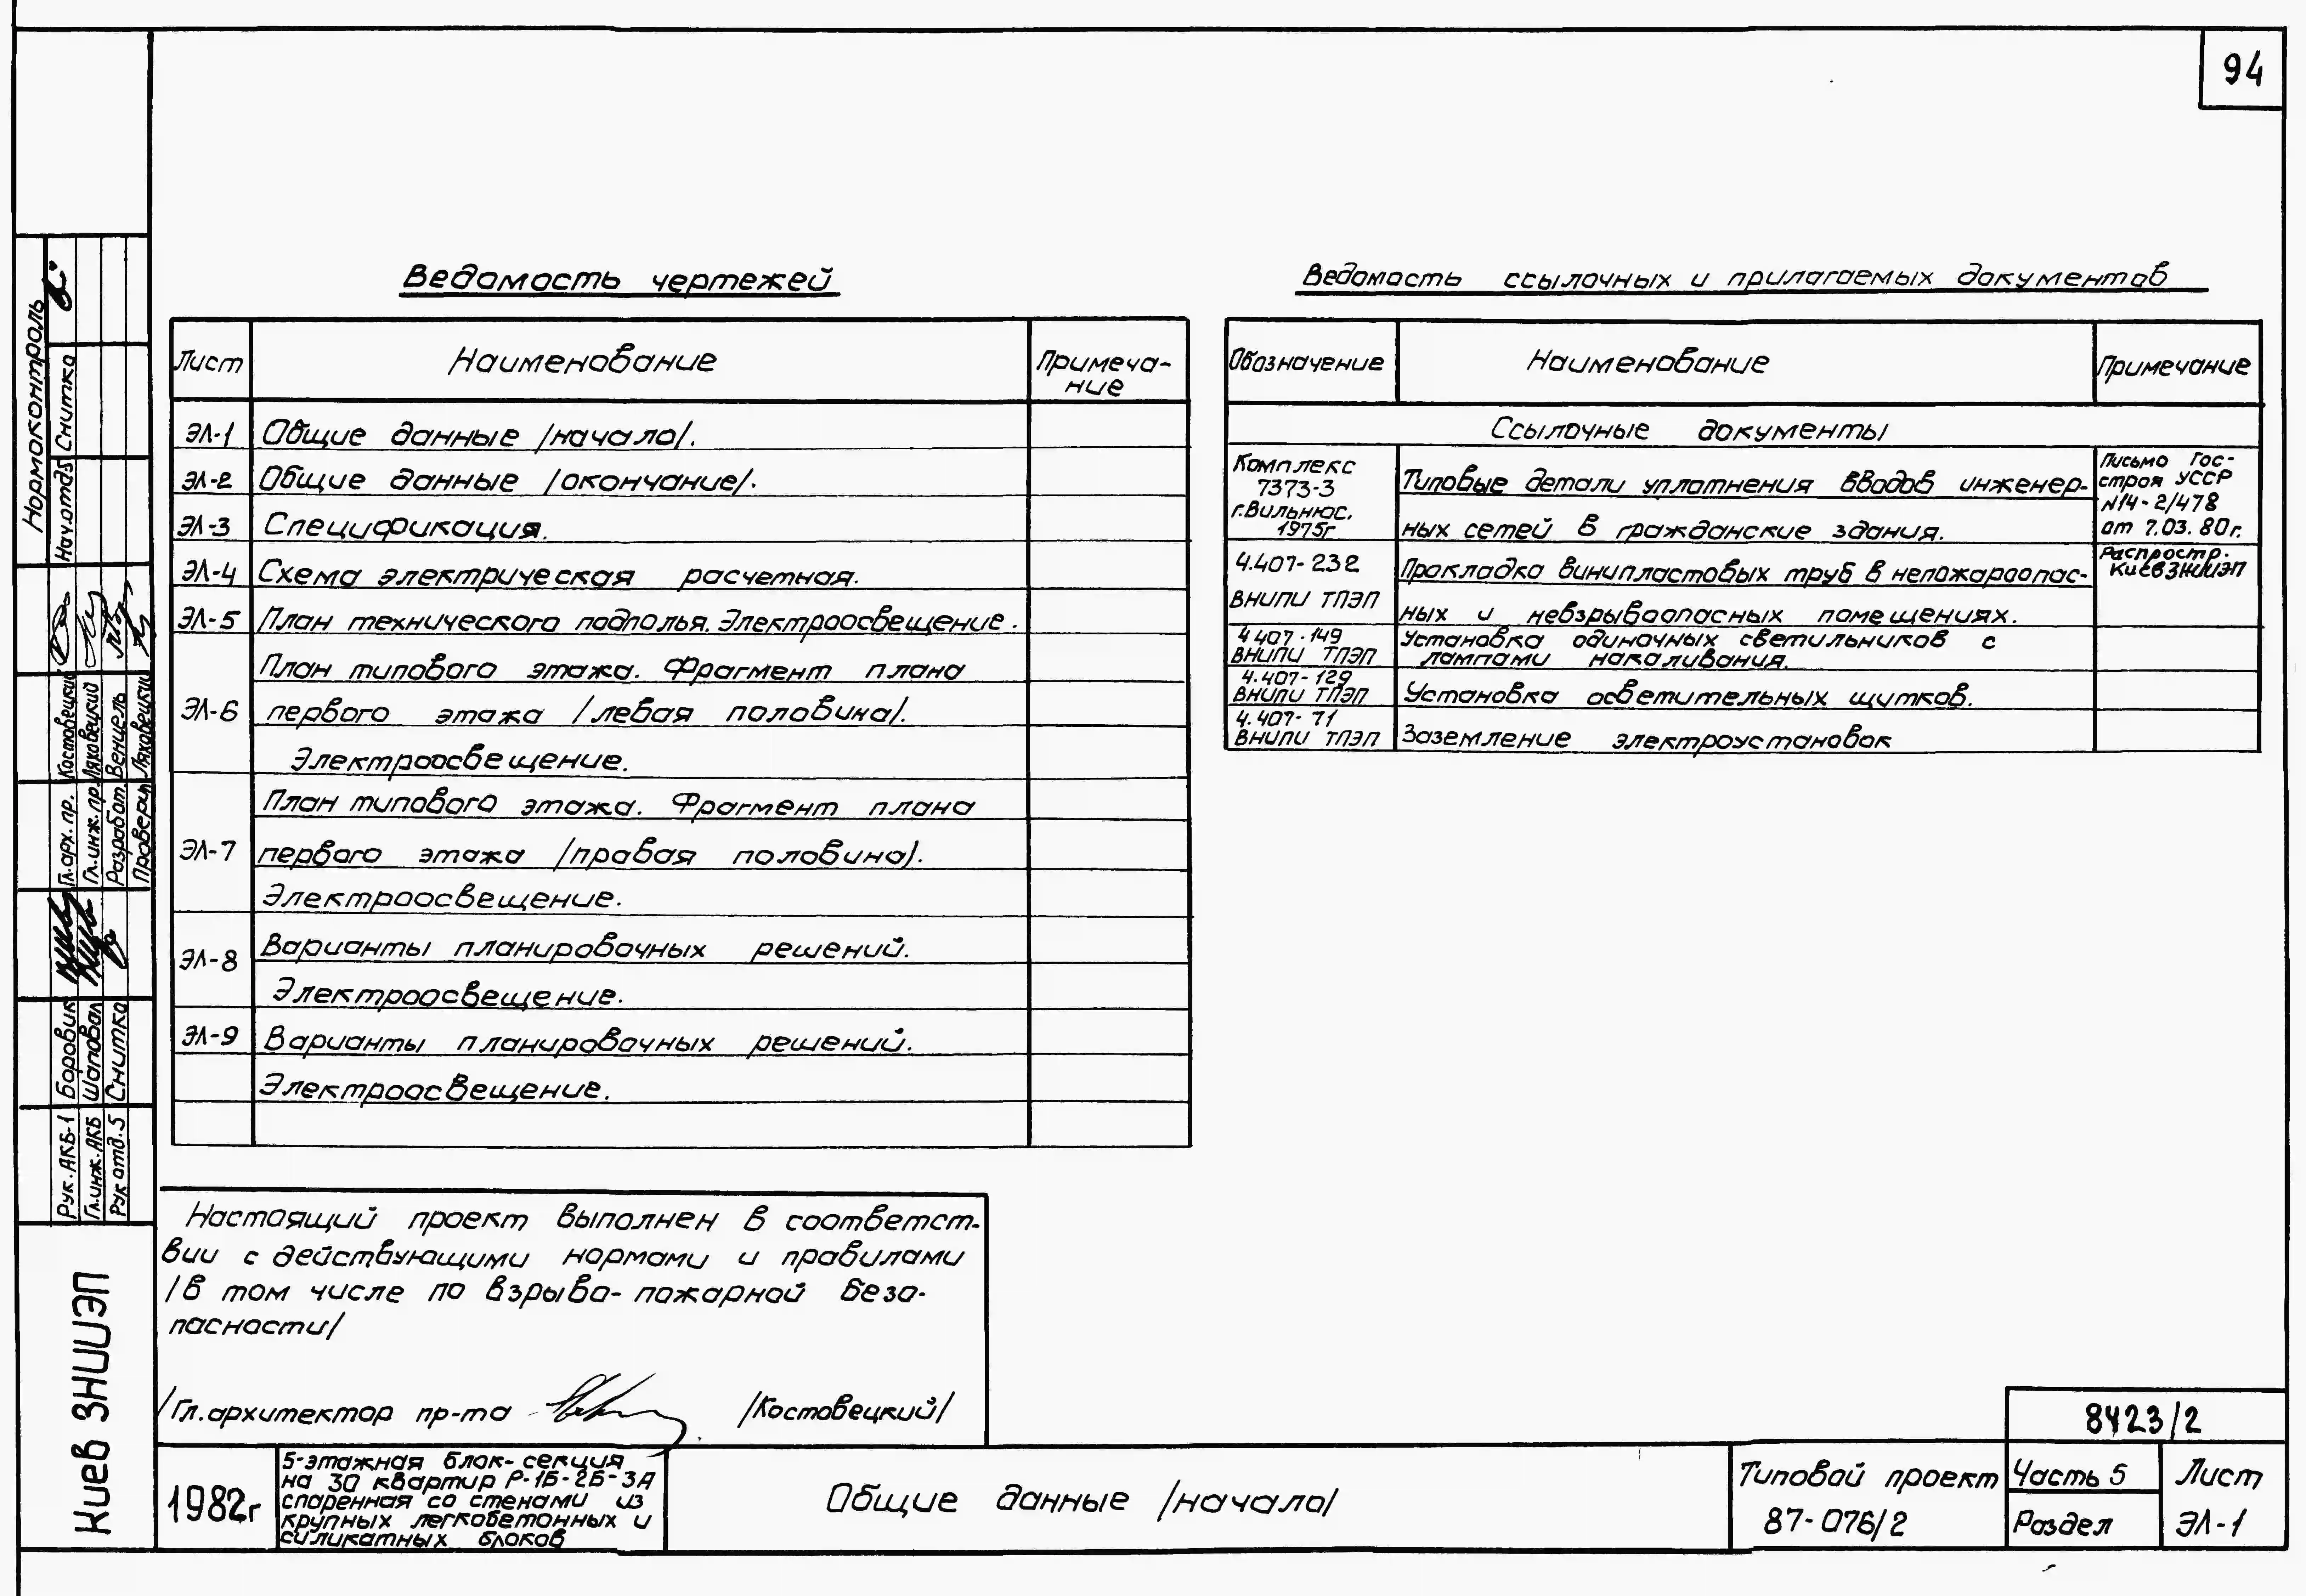 94
Ведомость чертежей
Лист Наименование Примеча-
ние
ЭЛ-1 Общие данные /начало/.
ЭЛ-2 Общие данные /окончание/.
ЭЛ-3 Спецификация.
ЭЛ-4 Схема электрическая расчетная.
ЭЛ-5 План технического подполья. Электроосвещение.
План типового этажа. Фрагмент плана
ЭЛ-6 первого этажа /левая половина/.
Электроосвещение.
План типового этажа. Фрагмент плана
ЭЛ-7 первого этажа /правая половина/.
Электроосвещение.
ЭЛ-8 Варианты планировочных решений.
Электроосвещение.
ЭЛ-9 Варианты планировочных решений.
Электроосвещение.
Ведомость ссылочных и прилагаемых документов
Обозначение Наименование Примечание
Ссылочные документы
Комплекс
7373-3
г.Вильнюс.
1975г
Типовые детали уплотнения вводов инженер-
ных сетей в гражданские здания.
Письмо Гос-
строя УССР
N14-2/478
от 7.03.80г.
Распростр.
КиевЗНИИЭП
4.407-232
ВНИПИ ТПЭП
Прокладка винипластовых труб в непожароопас-
ных и невзрывоопасных помещениях.
4.407-149
ВНИПИ ТПЭП
Установка одиночных светильников с
лампами накаливания.
4.407-129
ВНИПИ ТПЭП
Установка осветительных щитков.
4.407-71
ВНИПИ ТПЭП
Заземление электроустановок
Настоящий проект выполнен в соответст-
вии с действующими нормами и правилами
/в том числе по взрыво-пожарной безо-
пасности/
/Гл.архитектор пр-та /Костовецкий/
Нормоконтроль
Нач.отд5 Снитко
Гл.арх.пр. Костовецкий
Гл.инж.пр. Ляховецкий
Разработ. Венцель
Проверил Ляховецкий
Рук.АКБ-1 Боровик
Гл.инж.АКБ Шаповал
Рук отд.5 Снитко
Киев ЗНИИЭП
1982г
5-этажная блок-секция
на 30 квартир Р-1Б-2Б-3А
спаренная со стенами из
крупных легкобетонных и
силикатных блоков
Общие данные /начало/
Типовой проект
87-076/2
8423/2
Часть 5
Раздел
Лист
ЭЛ-1